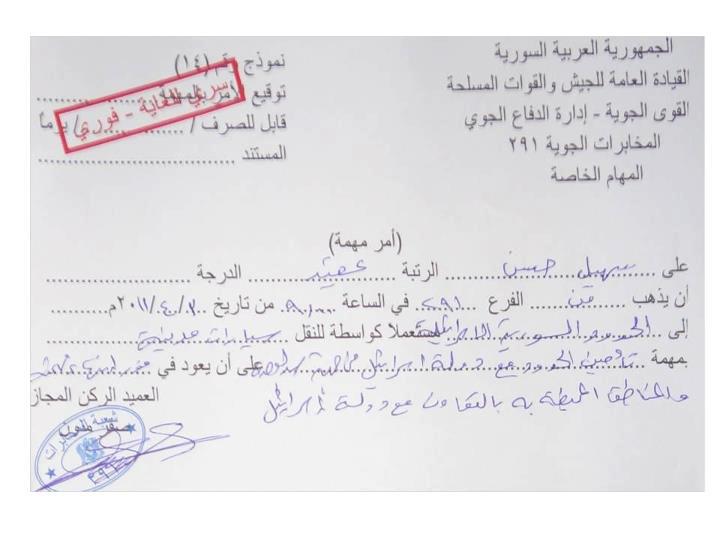 الجمهورية العربية السورية
القيادة العامة للجيش والقوات المسلحة
القوى الجوية - إدارة الدفاع الجوي
المخابرات الجوية ٢٩١
المهام الخاصة
نموذج رقم (١٤)
توقيع الأمر بالمهمة ..........
قابل للصرف / .......... / يوماً
المستند ..........
سري للغاية - فوري
(أمر مهمة)
على .......... سهيل حسن .......... الرتبة .... عقيد .......... الدرجة ..........
أن يذهب .... من .... الفرع .... ٢٩١ .... في الساعة .......... من تاريخ .......... م
إلى .... الحدود السورية .......... مستعملا كواسطة للنقل .... سيارات
بمهمة .... الحدود مع دولة اسرائيل .......... على أن يعود في
والمناطق المحيطة به بالتعاون مع دولة إسرائيل
العميد الركن المجاز